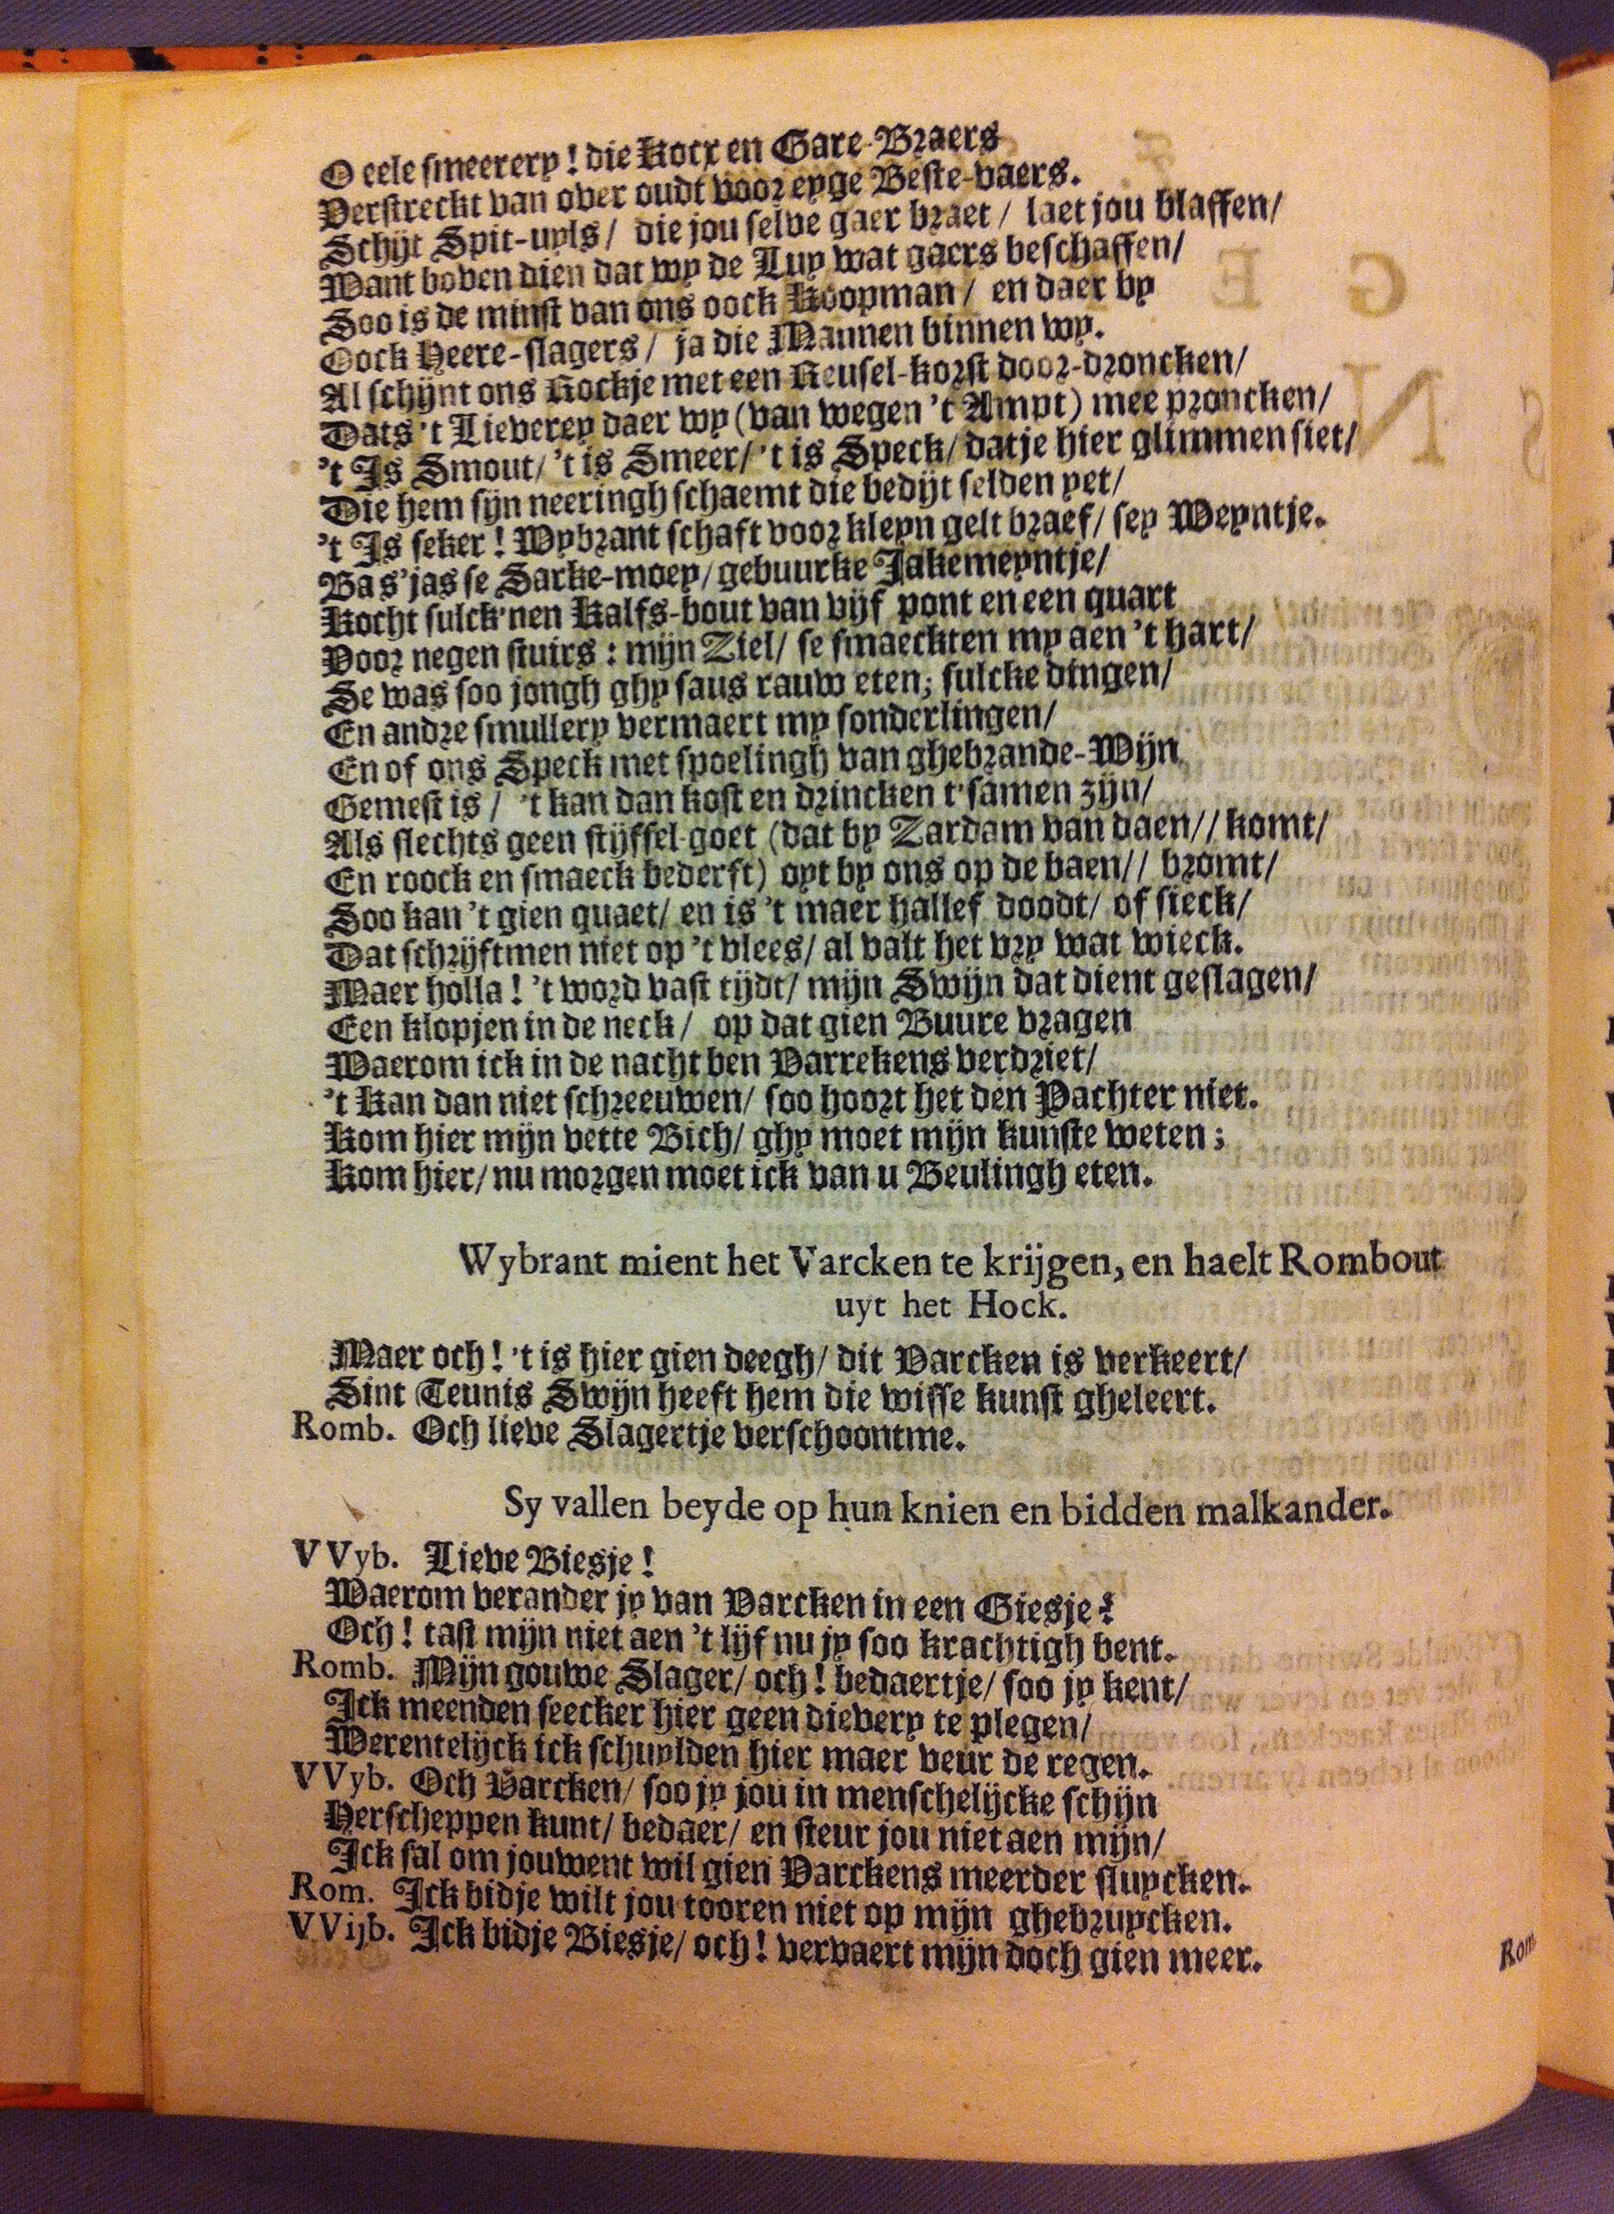 O eele smeerery! die Kocx en Gare-Braers
Verstreckt van over oudt voor eyge Beste-vaers.
Schijt Spit-uyls/ die jou selve gaer braet/ laet jou blaffen/
Want boven dien dat wy de Luy wat gaers beschaffen/
Soo is de minst van ons oock Koopman/ en daer by
Oock Heere-slagers/ ja die Mannen binnen wy.
Al schijnt ons Rockje met een Reusel-korst door-droncken/
Dats 't Lieverey daer wy (van wegen 't Ampt) mee proncken/
't Is Smout/ 't is Smeer/ 't is Speck/ datje hier glimmen siet/
Die hem sijn neeringh schaemt die bedijt selden yet/
't Is seker! Wybrant schaft voor kleyn gelt braef/ sey Weyntje.
Bas'jasse Sarke-moey/ gebuurke Jakemeyntje/
Kocht sulck'nen Kalfs-bout van vijf pont en een quart
Voor negen stuirs: mijn Ziel/ se smaeckten my aen 't hart/
Se was soo jongh ghy saus rauw eten; sulcke dingen/
En andre smullery vermaert my sonderlingen/
En of ons Speck met spoelingh van ghebrande-Wijn
Gemest is/ 't kan dan kost en drincken t'samen zijn/
Als slechts geen stijffel-goet (dat by Zardam van daen// komt/
En roock en smaeck bederft) oyt by ons op de baen// bromt/
Soo kan 't gien quaet/ en is 't maer hallef doodt/ of sieck/
Dat schrijftmen niet op 't vlees/ al valt het vry wat wieck.
Maer holla! 't word vast tijdt/ mijn Swijn dat dient geslagen/
Een klopjen in de neck/ op dat gien Buure vragen
Waerom ick in de nacht ben Varrekens verdriet/
't Kan dan niet schreeuwen/ soo hoort het den Pachter niet.
Kom hier mijn vette Bich/ ghy moet mijn kunste weten;
Kom hier/ nu morgen moet ick van u Beulingh eten.
Wybrant mient het Varcken te krijgen, en haelt Rombout
uyt het Hock.
Maer och! 't is hier gien deegh/ dit Varcken is verkeert/
Sint Teunis Swijn heeft hem die wisse kunst gheleert.
Romb. Och lieve Slagertje verschoontme.
Sy vallen beyde op hun knien en bidden malkander.
VVyb. Lieve Biesje!
Waerom verander jy van Varcken in een Giesje?
Och! tast mijn niet aen 't lijf nu jy soo krachtigh bent.
Romb. Mijn gouwe Slager/ och! bedaertje/ soo jy kent/
Ick meenden seecker hier geen dievery te plegen/
Werentelijck ick schuylden hier maer veur de regen.
VVyb. Och Varcken/ soo jy jou in menschelijcke schijn
Herscheppen kunt/ bedaer/ en steur jou niet aen mijn/
Ick sal om jouwent wil gien Varckens meerder sluycken.
Rom. Ick bidje wilt jou tooren niet op mijn ghebruycken.
VVijb. Ick bidje Biesje/ och! vervaert mijn doch gien meer.
Rom